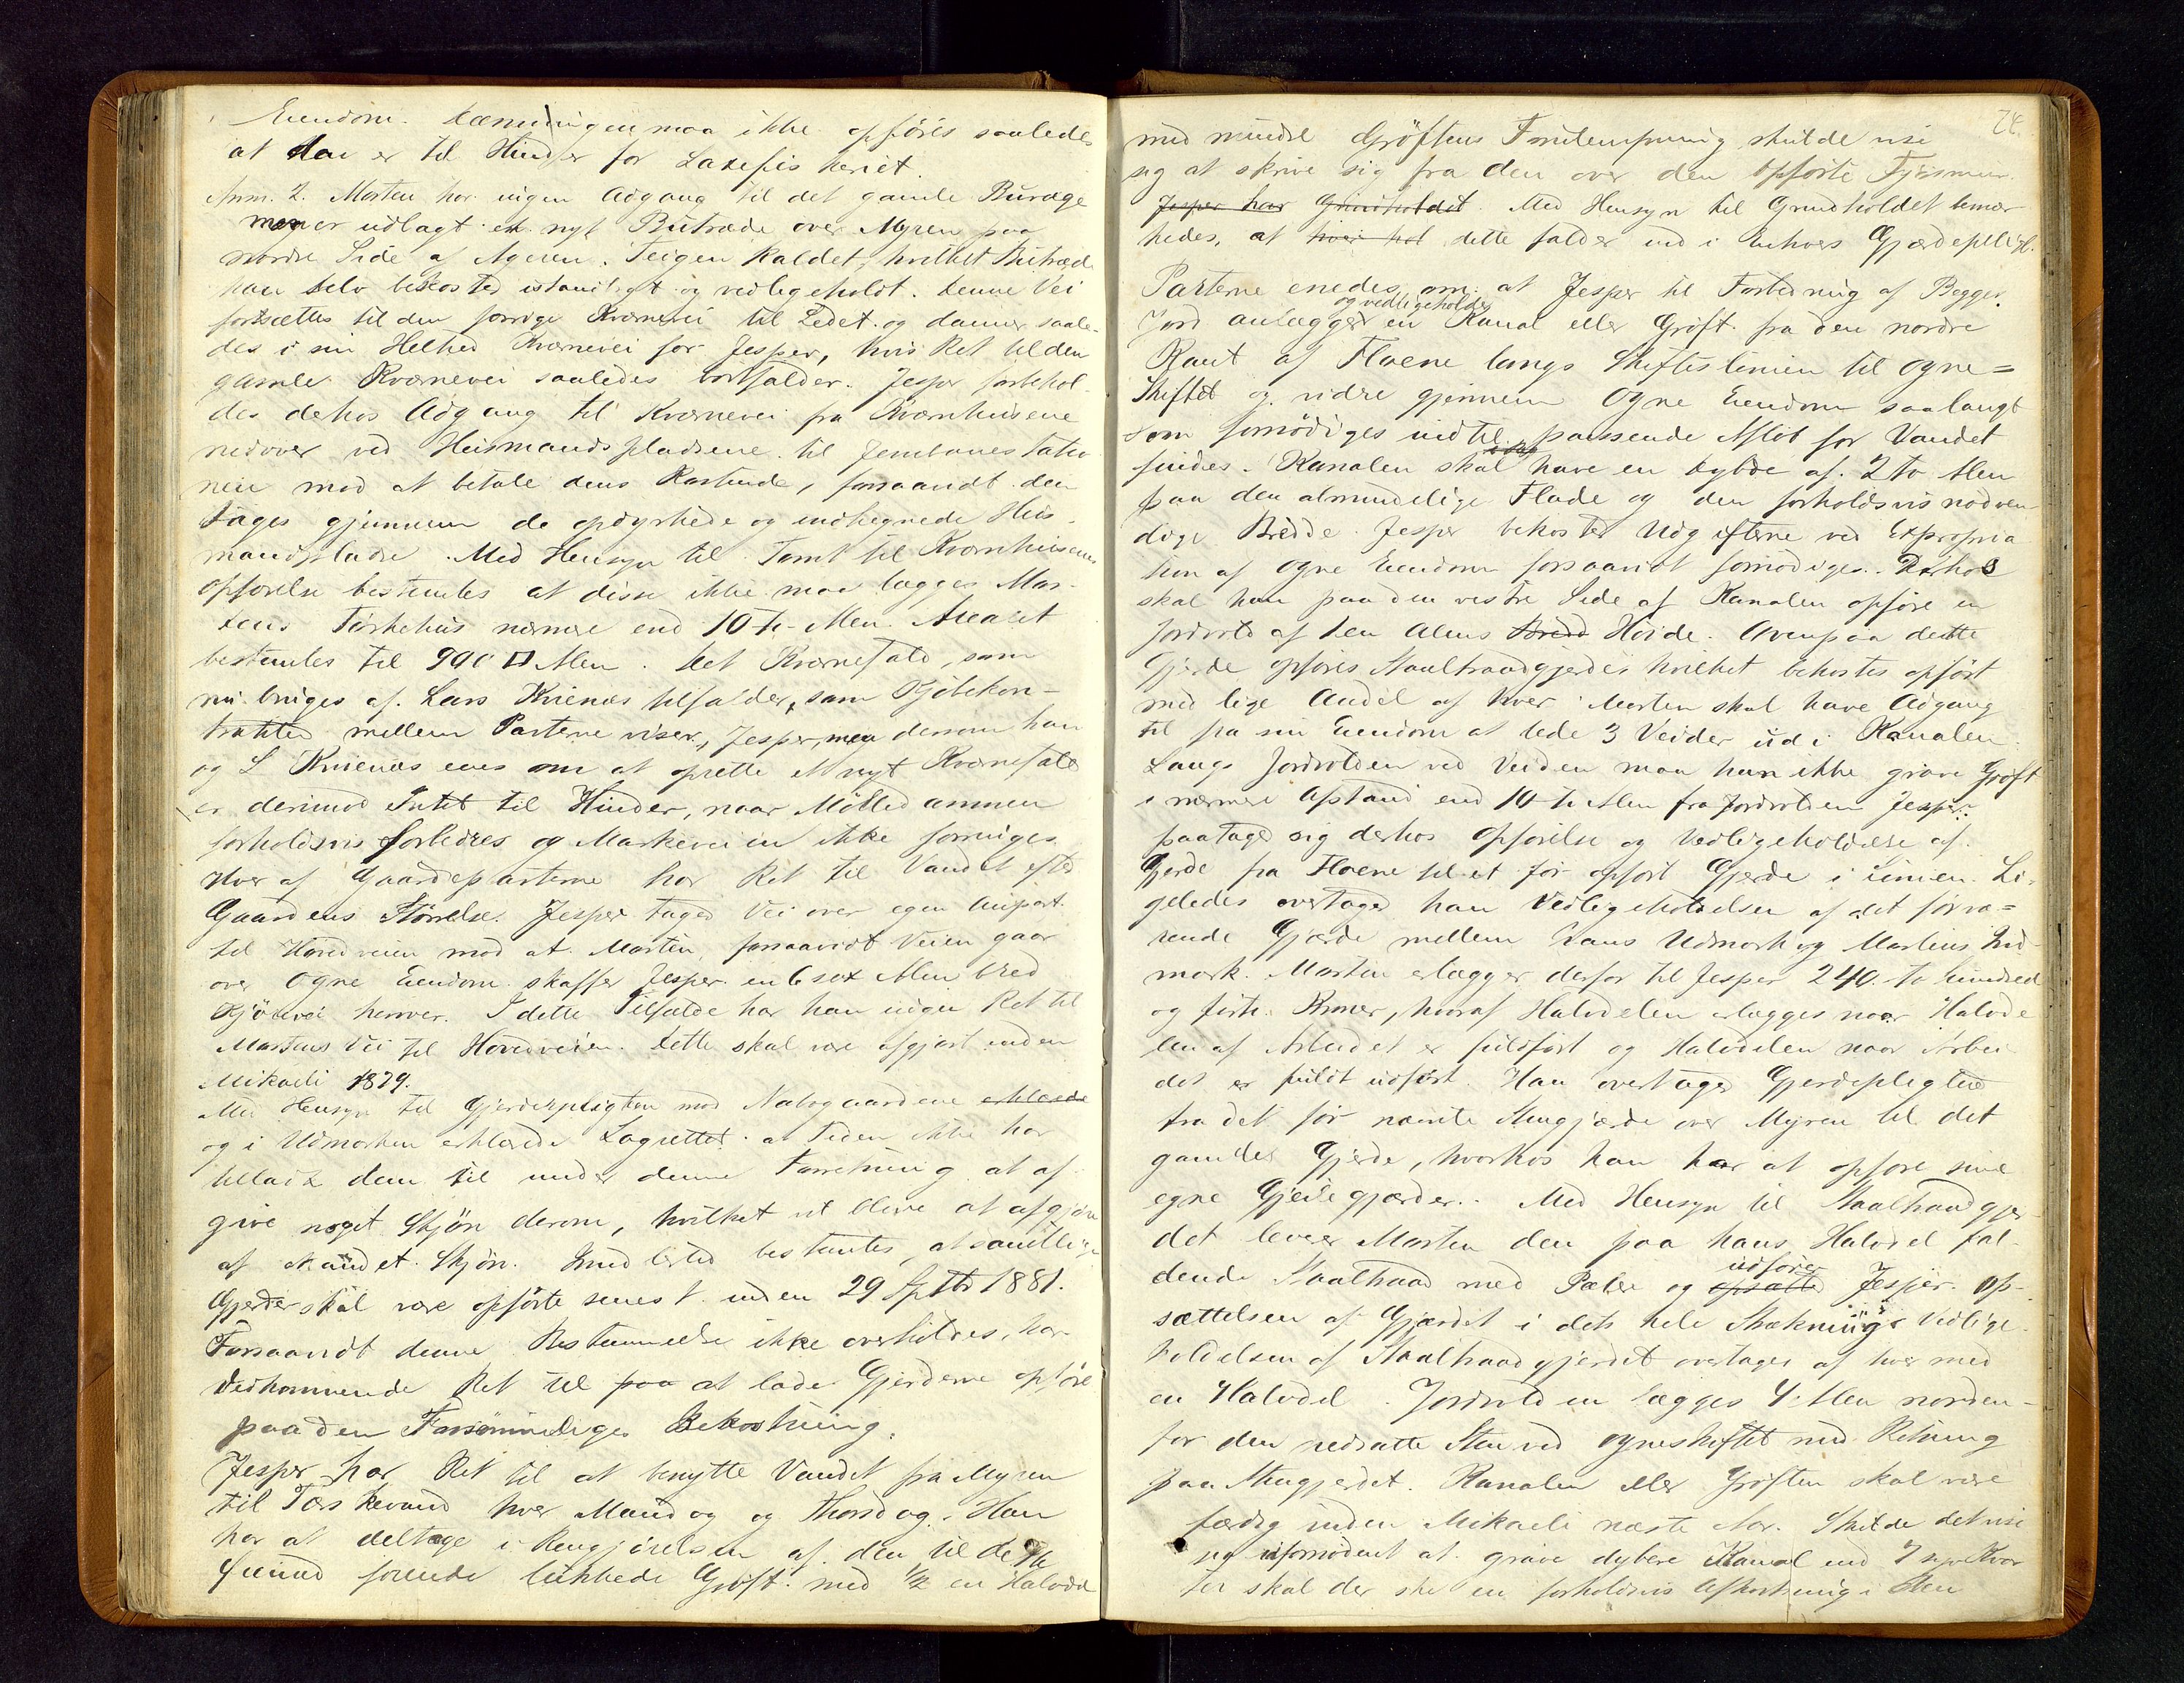 Eiendom. Dæmningen maa ikke opføres saaledes
at den er til Hinder for Laxefiskeriet.
Anm. 2. Morten har ingen Adgang til det gamle Buræge
men er udlagt et nyt Butræde over Myren paa
nordre Side af Ageren, Teigen kaldet, hvilket Butræde
han selv bekosted istandlagt og vedligeholdt. Denne Vei
fortsættes til den forrige Kværnevei til Ledet og danner saale-
des i sin Helhed Kværnevei for Jesper, hvis Ret til den
gamle Kværnevei saaledes bortfalder. Jesper forbehol-
des derhos Adgang til Kværnevei fra Kværnhusene
nedover ved Husmandspladsene til Jernbanestatio
nen mod at betale dens Kostende, forsaavidt den
tages gjennem de opdyrkede og indhegnede Hus-
mandspladse. Med Hensyn til Tomt til Kværnhusenes
opførelse bestemtes at disse ikke maa lægges Mor-
tens Tørkehus nærmere end 10 ti Alen. Arealet
bestemtes til 900 □ Alen. Det Kværnefald, som
nu bruges af Lars Kvienes tilfalder, som Kjøbekon-
trakten mellem Parterne viser, Jesper, men dersom han
og L Kvienes enes om at oprette et nyt Kværnefald
er derimod Intet til Hinder, naar Mølledammen
forholdsvis forbedres og Markeveien ikke forringes
Hver af Gaardeparterne har Ret til Vandet efter
Gaardens Størrelse. Jesper tager Vei over egen Anpart
til Hovedveien mod at Morten, forsaavidt Veien gaar
over Ogne Eiendom skaffer Jesper en 6 sex Alen bred
Kjørevei herover. I dette Tilfælde har han ingen Ret til
Mortens Vei til Hovedveien. Dette skal være afgjort inden
Mikaeli 1879.
Med Hensyn til Gjerdepligten mod Nabogaardene erklærede
og i Udmarken erklærede Lagrettet at Tiden ikke har
tilladt dem til under denne Forretning at af
give noget Skjøn derom, hvilket vil blive at afgjøre
af Mændet Skjøn. Imidlertid bestemtes, at samtlige
Gjerder skal være opførte senest inden 29 Septbr 1881.
Forsaavidt denne Bestemmelse ikke overholdes, har
Vedkommende Ret til paa at lade Gjerderne opføre
paa den Forsømmeliges Bekostning.
Jesper har Ret til at benytte Vandet fra Myren
til Tærskevand hver Mandag og Thorsdag. Han
har at deltage i Rengjørelsen af den til dette
Øiemed førende lukkede Grøft med 1/2 en Halvdel
74.
med mindre Grøftens Fortempning skulde vise
sig at skrive sig fra den over den opførte Fjøsmur.
Jesper har Grundholdet. Med Hensyn til Grundholdet bemær
kedes, at hver hol dette falder ind i Enhvers Gjærdepligt.
Parterne enedes om at Jesper til Forbedring af Begges
og vedligeholder
Jord anlægger en Kanal eller Grøft fra den nordre
Kant af Floene langs Skifteslinien til Ogne=
Skiftet og vidre gjennem Ogne Eiendom saalangt
som fornødiges indtil passende Afløb for Vandet
findes. Kanalen skal have en Dybde af 2 to Alen
paa den almindelige Flade og den forholdsvis nødven
dige Bredde. Jesper bekoster Udgifterne ved Expropria
tion af Ogne Eiendom forsaavidt fornødiges. Derhos
skal han paa den vestre Side af Kanalen opføre en
Jordvold af 1 en Alens Bredd Høide. Ovenpaa dette
Gjerde opføres Staaltraadgjerde hvilket bekostes opført
med lige Andel af hver. Morten skal have Adgang
til fra sin Eiendom at lede 3 Veider ud i Kanalen.
Langs Jordvolden ved Veiden maa han ikke grave Grøft
i nærmere Afstand end 10 ti Alen fra Jordvolden. Jesper
paatager sig derhos Opførelse og Vedligeholdelse af
Gjerde fra Floene til et før opført Gjerde i Linien. Li-
geledes overtager han Vedligeholdelsen af det førvæ=
rende Gjærde mellem hans Udmark og Martins Ind-
mark. Martin erlægger derfor til Jesper 240 to hundred
og førti Kroner, hvoraf Halvdelen erlægges naar Halvde
len af Arbeidet er fuldført og Halvdelen naar Arbei
det er fuldt udført. Han overtager Gjerdepligten
fra det før nævnte Stengjærde over Myren til det
gamle Gjerde, hvorhos han har at opføre sine
egne Gjeilegjærder. Med Hensyn til Staaltraadgjer
det lever Morten den paa hans Halvdel fal-
udfører
dende Staaltraad med Pæler og opsætted Jesper. Op-
sættelsen af Gjærdet i dets hele Strækning. Vedlige
holdelsen af Staaltraadgjerdet overtages af hver med
en Halvdel. Jordvolden lægges 4 Alen norden-
for den nedsatte Sten ved Ogneskiftet med Retning
paa Stengjerdet. Kanalen eller Grøften skal være
færdig inden Mikaeli næste Aar. Skulde det vise
sig ufornødent at grave dybere Kanal end 7 syv Kvar
ter skal der ske en forholdsvis Afkortning i den